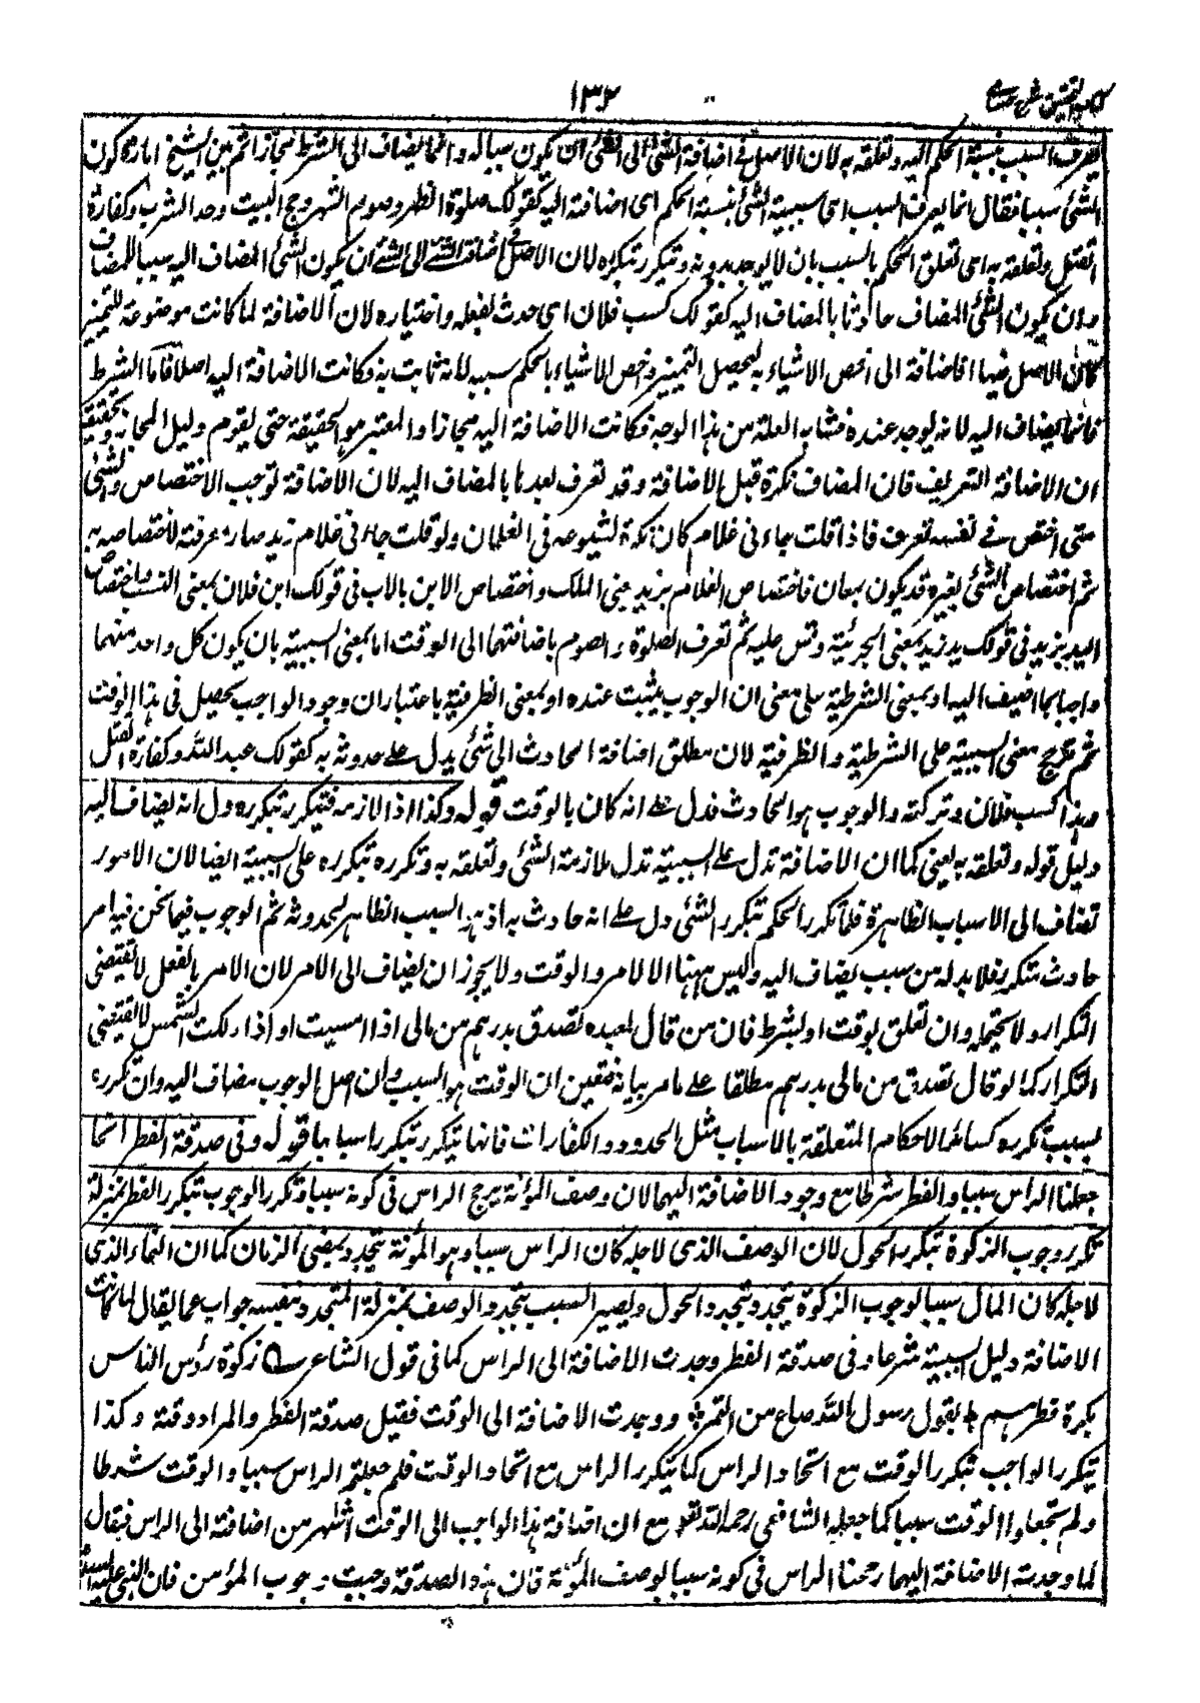 ١٣٢
يعرف السبب بنسبة الحكم اليه وتعلقه به لان الاصل فى اضافة الشئ الى الشئ ان يكون سبباله وانما يضاف الى الشرط مجازا ثم بين الشيخ امارة كون
الشئ سببا فقال انما يعرف السبب اى سببية الشئ بنسبة الحكم اى اضافته اليه كقولك صلوة الظهر وصوم الشهر وحج البيت وحد الشرب وكفارة
القتل وتعلقه به اى تعلق الحكم بالسبب بان لا يوجد بدونه ويتكرر بتكرره لان الاصل فى اضافة الشئ الى الشئ ان يكون الشئ المضاف اليه سببا للمضاف
وان يكون الشئ المضاف حادثا بالمضاف اليه كقولك كسب فلان اى حدث بفعله واختياره لان الاضافة لما كانت موضوعة للتمييز
كان الاصل فيها اضافة الى اخص الاشياء به ليحصل التمييز واخص الاشياء بالحكم سببه لانه ثابت به فكانت الاضافة اليه اصلا فاما الشرط
فانما يضاف اليه لانه يوجد عنده فشابه العلة من هذا الوجه فكانت الاضافة اليه مجازا والمعتبر هو الحقيقة حتى يقوم دليل المجاز وتحقيقه
ان الاضافة التعريف فان المضاف نكرة قبل الاضافة وقد تعرف بعدها بالمضاف اليه لان الاضافة توجب الاختصاص والشئ
متى اختص فى نفسه تعرف فاذا قلت جاءنى غلام كان نكرة لشيوعه فى الغلمان ولو قلت جاءنى غلام زيد صار معرفة لاختصاصه به
ثم اختصاص الشئ بغيره قد يكون بمعان فاختصاص الغلام بزيد يعنى الملك واختصاص الابن بالاب فى قولك ابن فلان بمعنى النسب واختصاص
اليد بزيد فى قولك يد زيد بمعنى الجزئية وقس عليه ثم تعرف الصلوة والصوم باضافتهما الى الوقت اما بمعنى السببية بان يكون كل واحد منهما
واجبا بما اضيف اليه او بمعنى الشرطية على معنى ان الوجوب يثبت عنده او بمعنى الظرفية باعتبار ان وجود الواجب يحصل فى هذا الوقت
ثم ترجح معنى السببية على الشرطية والظرفية لان مطلق اضافة الحادث الى شئ يدل على حدوثه به كقولك عبد الله وكفارة القتل
وهذا كسب فلان وتركته والوجوب هو الحادث فدل على انه كان بالوقت قوله وكذا اذا لازمه فتكرر بتكرره دل انه يضاف اليه
دليل قوله وتعلقه به يعنى كما ان الاضافة تدل على السببية تدل ملازمة الشئ وتعلقه به وتكرره بتكرره على السببية ايضا لان الامور
تضاف الى الاسباب الظاهرة فلما تكرر الحكم بتكرر الشئ دل على انه حادث به اذ هو السبب الظاهر لحدوثه ثم الوجوب فيما نحن فيه امر
حادث متكرر فلا بد له من سبب يضاف اليه وليس ههنا الا الامر والوقت ولا يجوز ان يضاف الى الامر لان الامر بالفعل لا يقتضى
التكرار ولا يحتمله وان تعلق بوقت او بشرط فان من قال لعبده تصدق بدرهم من مالى اذا امسيت او اذا دلكت الشمس لا يقتضى
التكرار كما لو قال تصدق من مالى بدرهم مطلقا على ما مر بيانه فتعين ان الوقت هو السبب وان اصل الوجوب مضاف اليه وان تكرره
بسبب تكرره كسائر الاحكام المتعلقة بالاسباب مثل الحدود والكفارات فانها تتكرر بتكرر اسبابها قوله وفى صدقة الفطر انما
جعلنا الراس سببا والفطر شرطا مع وجود الاضافة اليهما لان وصف المؤنة يرجح الراس فى كونه سببا وتكرر الوجوب بتكرر الفطر بمنزلة
تكرر وجوب الزكوة بتكرر الحول لان الوصف الذى لاجله كان الراس سببا وهو المؤنة يتجدد بمضى الزمان كما ان النماء الذى
لاجله كان المال سببا لوجوب الزكوة يتجدد بتجدد الحول ويصير السبب بتجدد الوصف بمنزلة المتجدد بنفسه جواب عما يقال لما كانت
الاضافة دليل السببية شرعا وفى صدقة الفطر وجدت الاضافة الى الراس كما فى قول الشاعر زكوة رؤس الناس
بكرة فطرهم بقول رسول الله صاع من التمر ووجدت الاضافة الى الوقت فقيل صدقة الفطر والمراد وقته وكذا
يتكرر الواجب بتكرر الوقت مع اتحاد الراس كما يتكرر الراس مع اتحاد الوقت فلم جعلتم الراس سببا والوقت شرطا
ولم تجعلوا الوقت سببا كما جعله الشافعى رحمه الله تعالى مع ان اضافة هذا الواجب الى الوقت اشهر من اضافته الى الراس فقال
لما وجدت الاضافة اليهما رجحنا الراس فى كونه سببا لوصف المؤنة فان هذه الصدقة وجبت وجوب المؤمن فان النبى عليه السلام